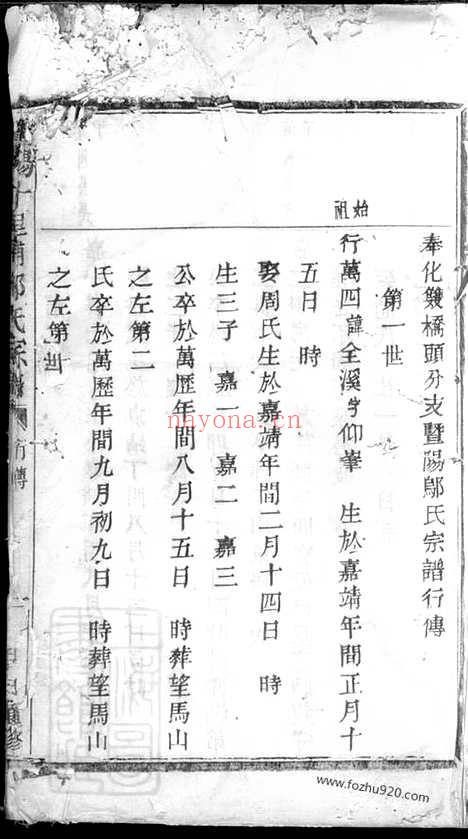 奉化雙橋頭分支暨陽鄔氏宗譜行傳
第一世
始祖
行萬四諱全溪字仰峯 生於嘉靖年間正月十
五日 時
娶周氏生於嘉靖年間二月十四日 時
生三子 嘉一 嘉二 嘉三
公卒於萬歷年間八月十五日 時葬望馬山
之左第二
氏卒於萬歷年間九月初九日 時葬望馬山
之左第世
陽十里鄔氏宗譜
行傳
修
nayona.cn
www.fozhu920.com